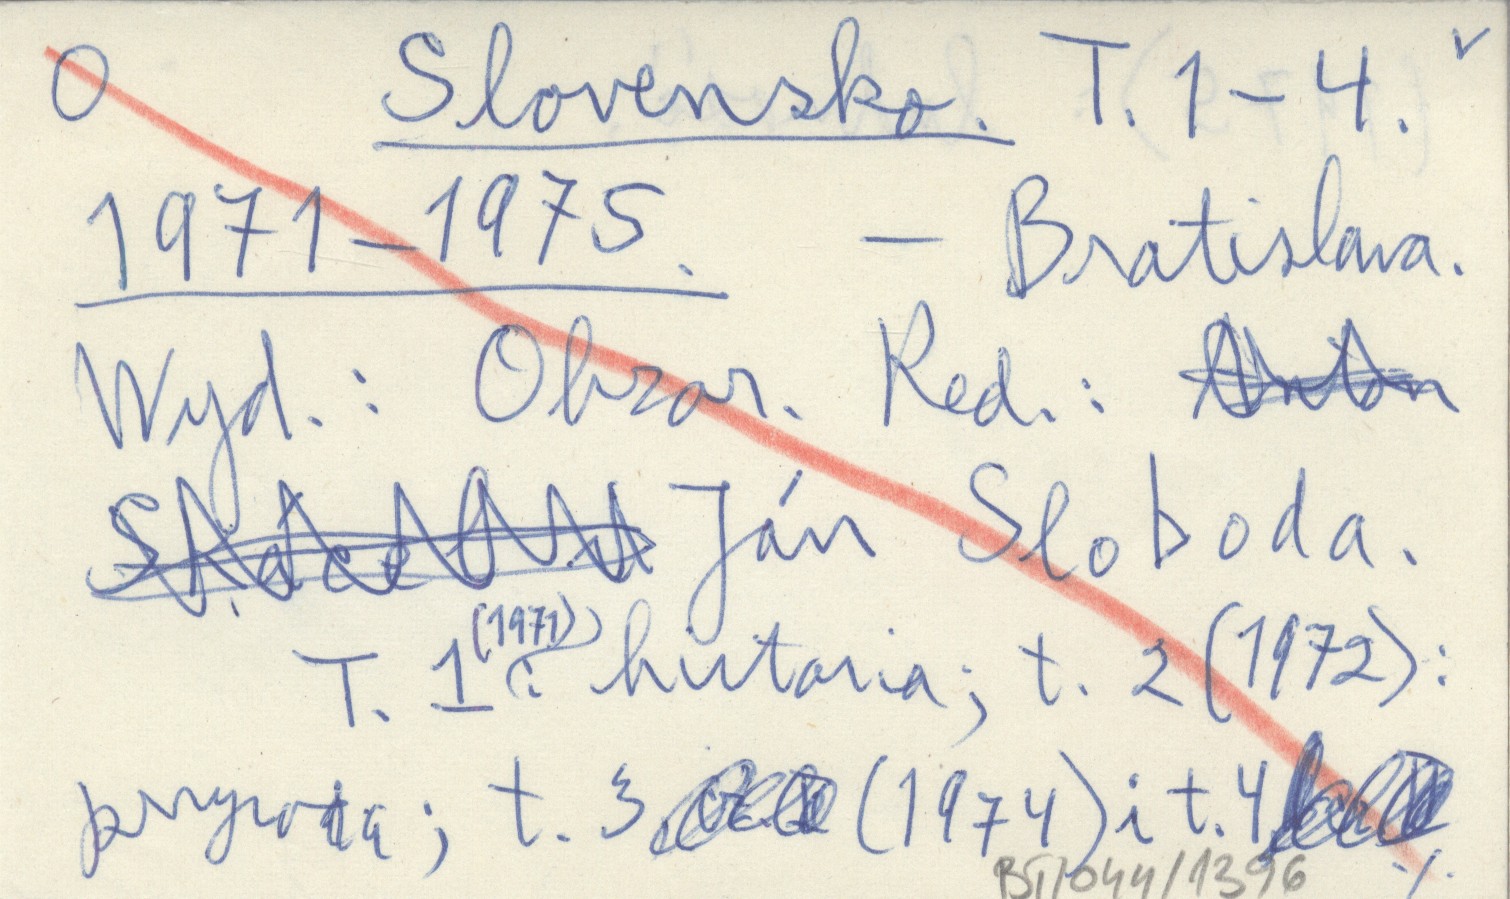 O Slovensko. T. 1-4. v
1971-1975. - Bratislava.
Wyd.: Obzor. Red.:
Ján Sloboda.
T. 1 (1971): historia; t. 2 (1972):
przyroda; t. 3 (1974) i t. 4
BS/044/1396 ./.